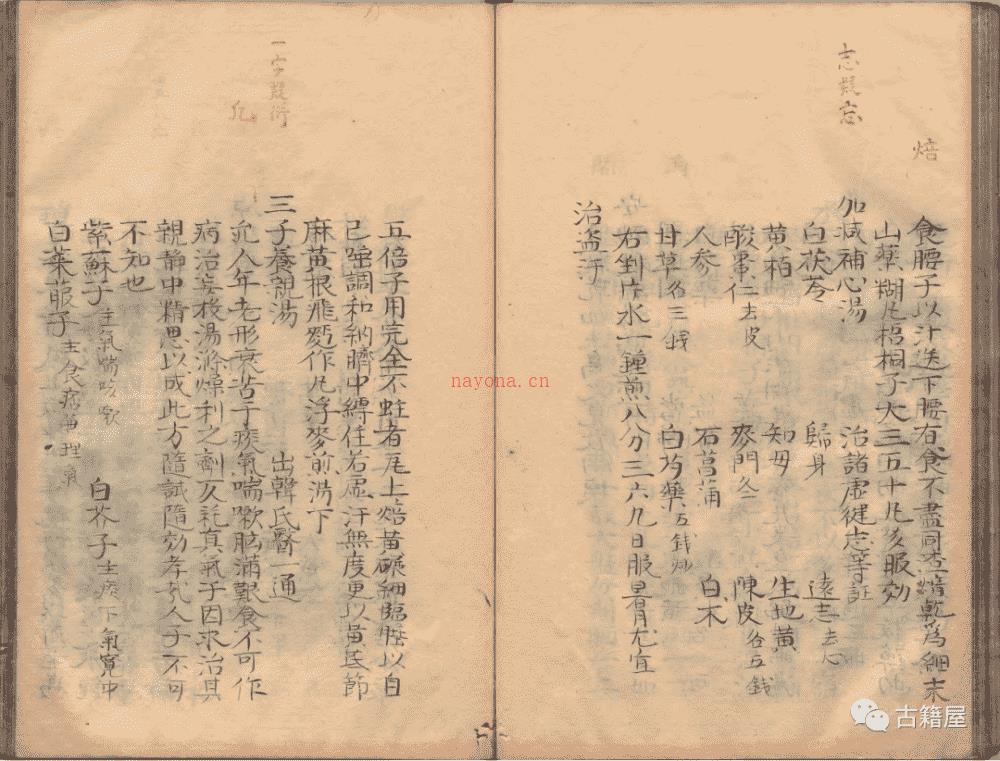 志疑忘
焙
食腰子以汁送下腰有食不盡同查焙乾為細末
山藥糊凡梧桐子大三五十凡多服効
加减補心湯 治諸虛健志等証
白茯苓 歸身 遠志去心
黄栢 知母 生地黄
酸棗仁去皮 麥門冬 陳皮各五錢
人参 石菖蒲 白术
甘草各三錢 白芍藥五錢炒
右剉片水一鍾煎八分三六九日服胃尤宜
治盗汗
一字疑衍
凢
五倍子用完全不蛀者瓦上焙黄碾細臨㱕以自
己唾調和納臍中縛住若虛汗無度更以黄芪節
麻黄根飛麵作凡浮麥煎湯下
三子養親湯 出韓氏醫一通
凢人年老形衰苦于痰氣喘嗽胸滿艱食不可作
病治妄投湯滌燥利之劑反耗真氣子因求治其
親静中精思以成此方隨試隨効孝哉人子不可
不知也
紫蘇子主氣喘咳嗽 白芥子主痰下氣寬中
白菜菔子主食痞兼理氣
nayona.cn
古籍屋